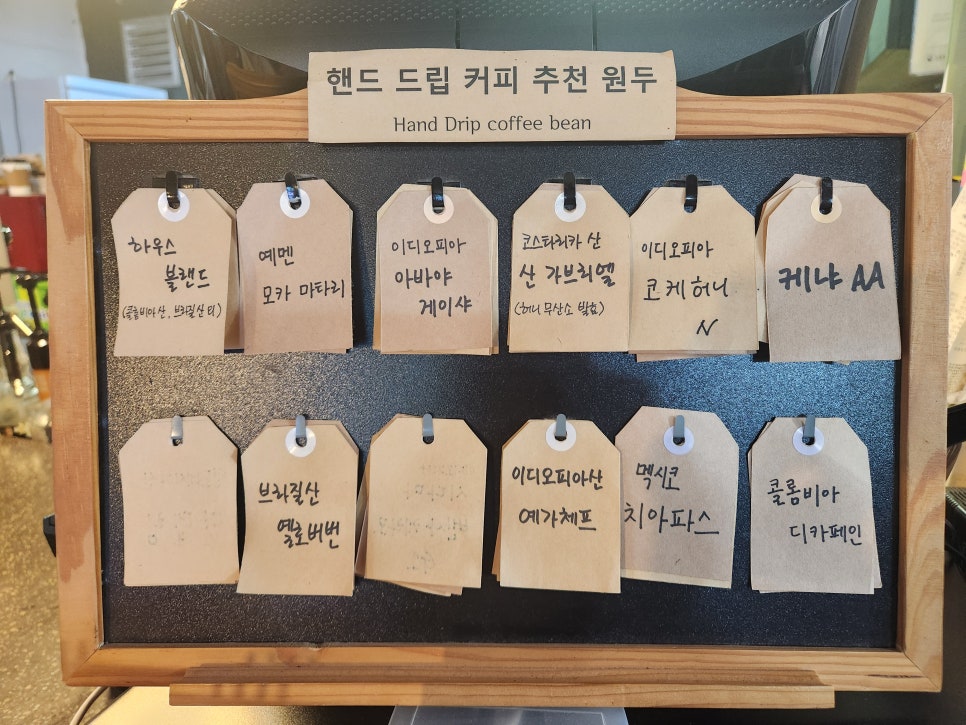 핸드 드립 커피 추천 원두
Hand Drip coffee bean
하우스
블랜드
(콜롬비아산, 브라질산 티)
예멘
모카 마타리
이디오피아
아바야
게이샤
코스타리카 산
산 가브리엘
(허니 무산소 발효)
이디오피아
코케 허니
N
케냐 AA
브라질산
옐로버번
이디오피아산
예가체프
멕시코
치아파스
콜롬비아
디카페인